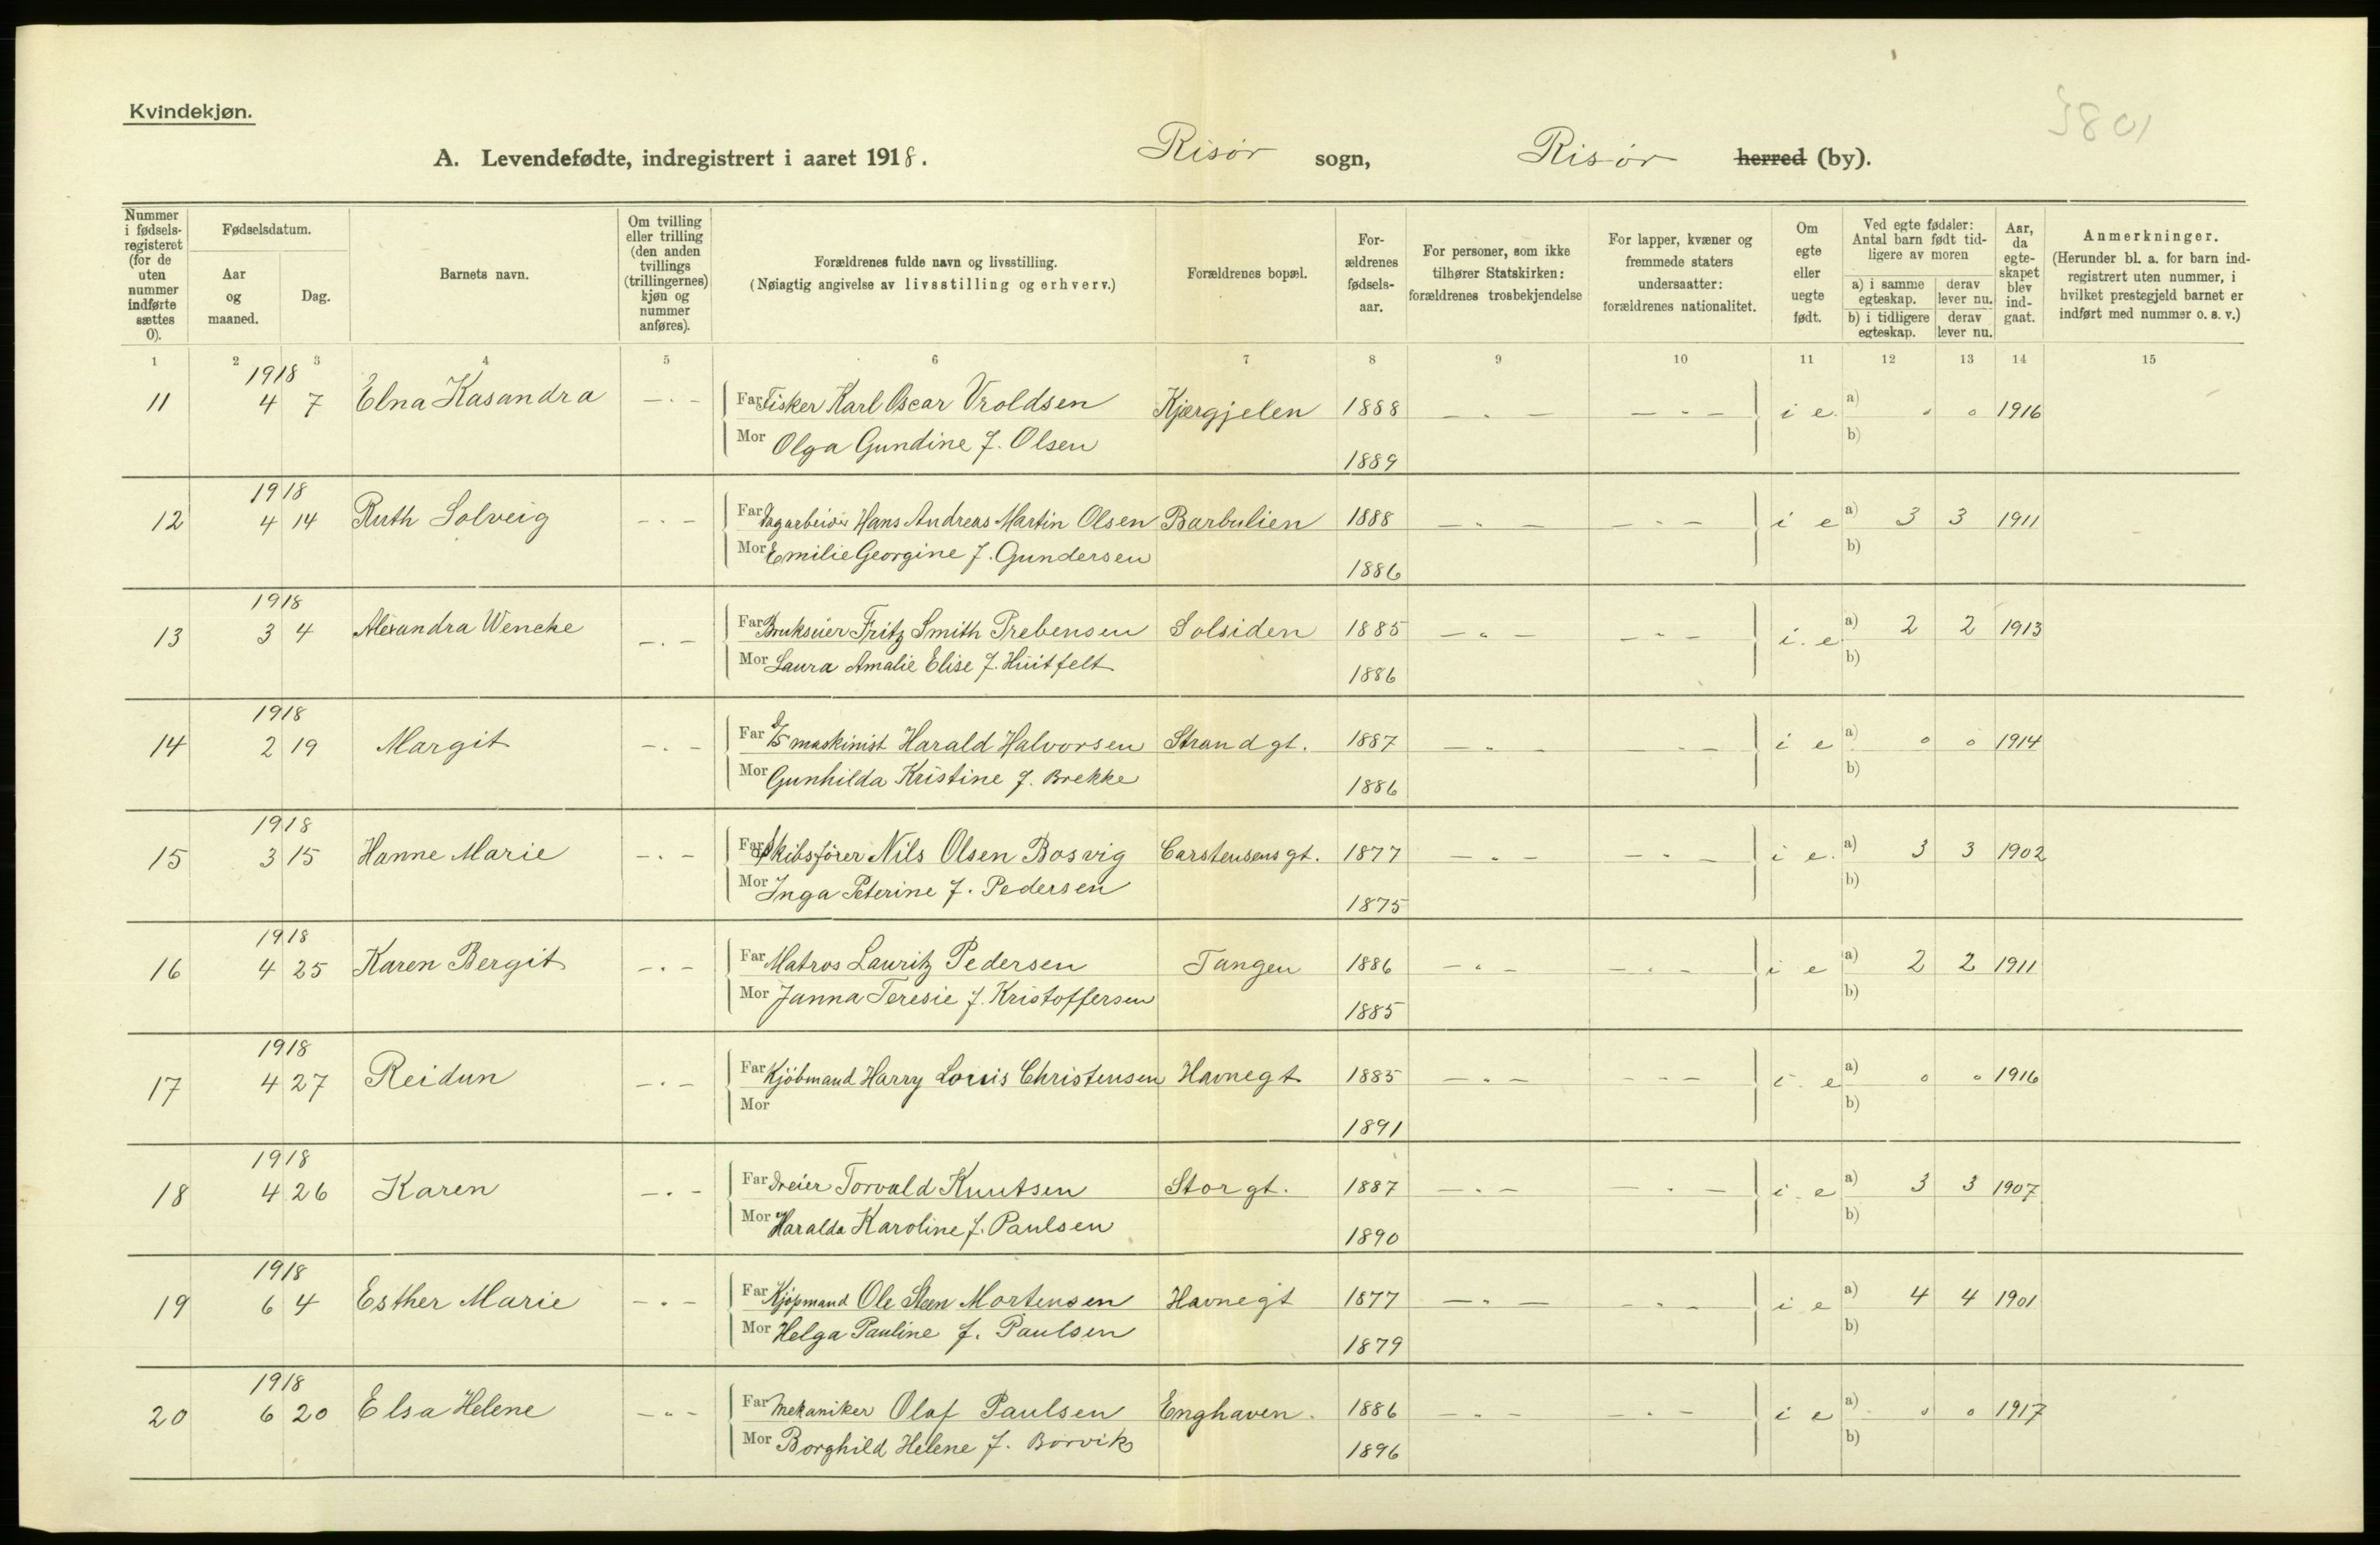 Kvindekjøn.
3801
A. Levendefødte, indregistrert i aaret 1918. Risör sogn, Risør herred (by).
Nummer i fødselsregisteret (for de uten nummer indførte sættes 0).
Fødselsdatum.
Aar og maaned.
Dag.
Barnets navn.
Om tvilling eller trilling (den anden tvillings (trillingernes) kjøn og nummer anføres).
Forældrenes fulde navn og livsstilling.
(Nøiagtig angivelse av livsstilling og erhverv.)
Forældrenes bopæl.
Forældrenes fødselsaar.
For personer, som ikke tilhører Statskirken: forældrenes trosbekjendelse
For lapper, kvæner og fremmede staters undersaatter: forældrenes nationalitet.
Om egte eller uegte født.
Ved egte fødsler: Antal barn født tidligere av moren
a) i samme egteskap. derav lever nu.
b) i tidligere egteskap. derav lever nu.
Aar, da egteskapet blev indgaat.
Anmerkninger.
(Herunder bl. a. for barn indregistrert uten nummer, i hvilket prestegjeld barnet er indført med nummer o. s. v.)
1 2 3 4 5 6 7 8 9 10 11 12 13 14 15
1918
11 4 7 Elna Kasandra - . - Far Fisker Karl Oscar Vroldsen Kjærgjelen 1888 - „ - - „ - i e. a) o o 1916
Mor Olga Gundine f. Olsen 1889 b)
1918
12 4 14 Ruth Solveig - . - Far Dagarbeider Hans Andreas Martin Olsen Barbulien 1888 - „ - - „ - i e a) 3 3 1911
Mor Emilie Georgine f. Gundersen 1886 b)
1918
13 3 4 Alexandra Wencke - . - Far Brukseier Fritz Smith Prebensen Solsiden 1885 - „ - - „ - i. e a) 2 2 1913
Mor Laura Amalie Elise f. Huitfelt 1886 b)
1918
14 2 19 Margit - . - Far D/S maskinist Harald Halvorsen Strandgt. 1887 - „ - - „ - i e a) o o 1914
Mor Gunhilda Kristine f. Brekke 1886 b)
1918
15 3 15 Hanne Marie - . - Far Skibsfører Nils Olsen Bosvig Carstensensgt. 1877 - „ - - „ - i e. a) 3 3 1902
Mor Inga Peterine f. Pedersen 1875 b)
1918
16 4 25 Karen Bergit - . - Far Matros Lauritz Pedersen Tangen 1886 - „ - - „ - i e a) 2 2 1911
Mor Janna Teresie f. Kristoffersen 1885 b)
1918
17 4 27 Reidun - . - Far Kjöbmand Harry Louis Christensen Havnegt 1885 - „ - - - - i. e a) o o 1916
Mor 1891 b)
1918
18 4 26 Karen - . - Far Dreier Torvald Knutsen Storgt. 1887 - . - - . - i. e a) 3 3 1907
Mor Haralda Karoline f. Paulsen 1890 b)
1918
19 6 4 Esther Marie - . - Far Kjøpmand Ole Steen Mortensen Havnegt 1877 - „ - - „ - i e a) 4 4 1901
Mor Helga Pauline f. Paulsen 1879 b)
1918
20 6 20 Elsa Helene - „ - Far Mekaniker Olaf Paulsen Enghaven. 1886 - „ - - „ - i e a) o o 1917
Mor Borghild Helene f. Børvik 1896 b)